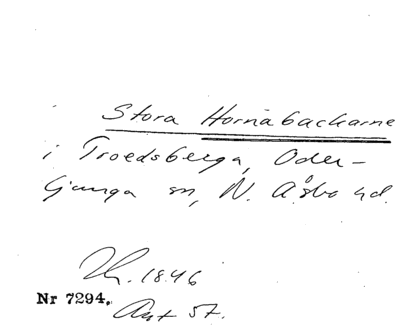 Stora Hornabackarne
i Troedsberga, Oder-
ljunga sn, N. Åsbo hd.
1846
Nr 7294.
57.